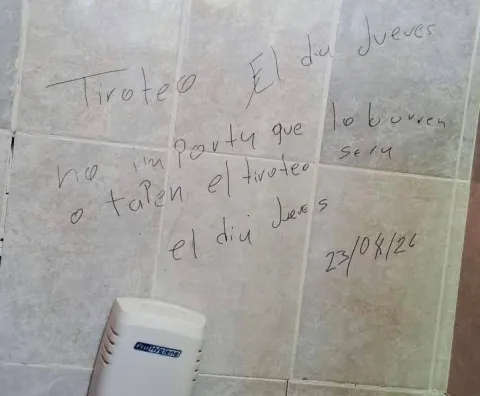 Tiroteo El dia Jueves
no importa que lo borren
o tapen el tiroteo sera
el dia Jueves
23/04/26
ProHygiene